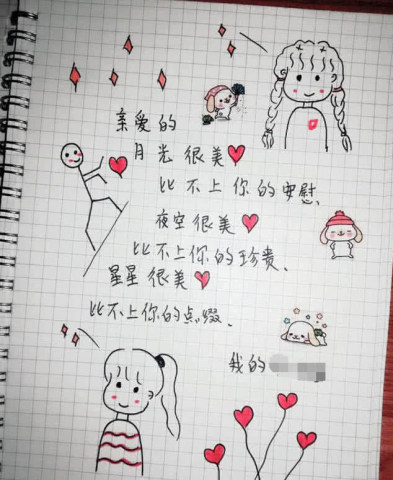 亲爱的
月光很美
比不上你的安慰、
夜空很美
比不上你的珍贵、
星星很美
比不上你的点缀、
我的